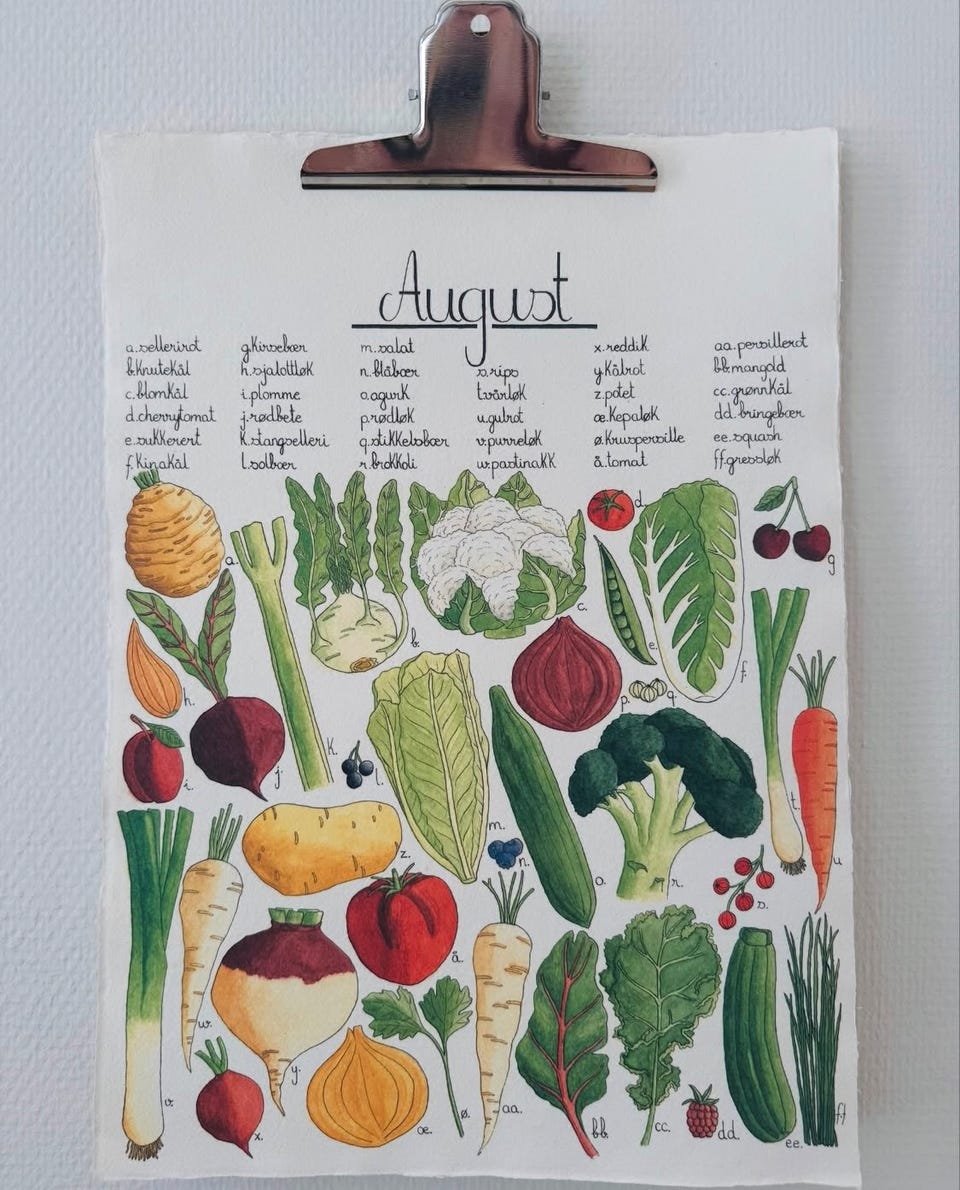 August
a.sellerirot
b.knutekål
c.blomkål
d.cherrytomat
e.sukkerert
f.kinakål
g.kirsebær
h.sjalottløk
i.plomme
j.rødbete
k.stangselleri
l.solbær
m.salat
n.blåbær
o.agurk
p.rødløk
q.stikkelsbær
r.brokkoli
s.rips
t.vårløk
u.gulrot
v.purreløk
w.pastinakk
x.reddik
y.kålrot
z.potet
æ.kepaløk
ø.kruspersille
å.tomat
aa.persillerot
bb.mangold
cc.grønnkål
dd.bringebær
ee.squash
ff.gressløk
d.
g
a.
c.
b.
e.
f.
h.
p.
q.
k.
j.
i.
l.
m.
t.
n.
z.
u
o.
r.
s.
å.
w.
y.
v.
x.
œ.
ø.
aa.
bb.
cc.
dd.
ee.
ff